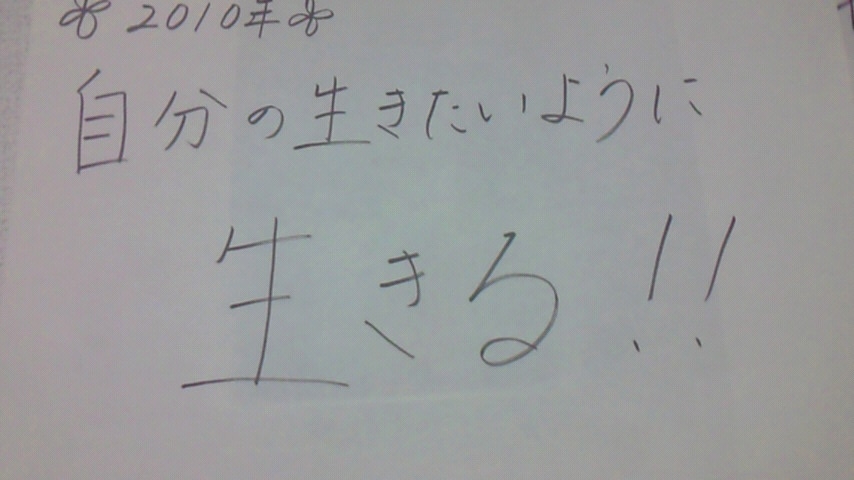 2010年
自分の生きたいように
生きる!!